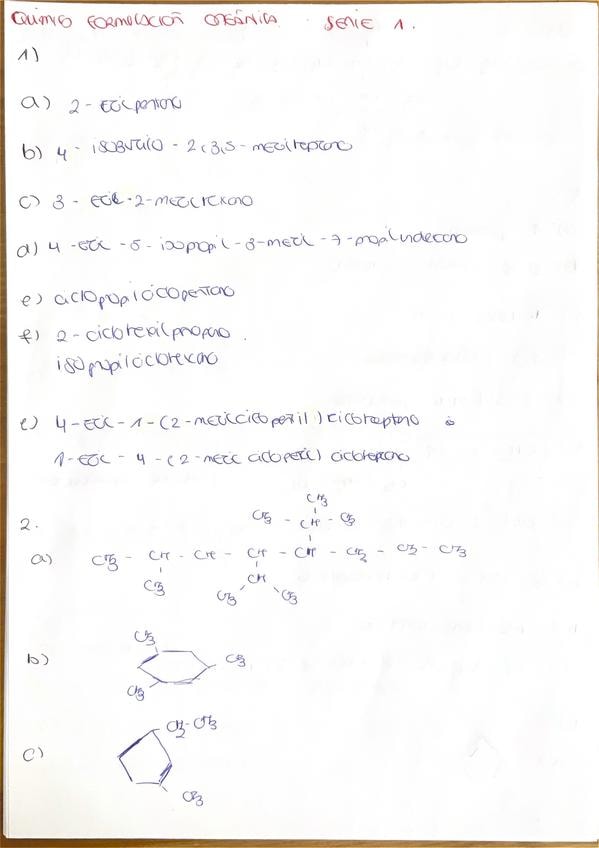 QUIMICA FORMULACIÓN ORGÁNICA. SERIE 1.
1)
a) 2-etilpentano
b) 4-isobutilo-2,3,5-metilheptano
c) 3-etil-2-metilhexano
d) 4-etil-5-isopropil-3-metil-7-propilundecano
e) ciclopropilciclopentano
f) 2-ciclohexilpropano.
isopropilciclohexano
e) 4-etil-1-(2-metilciclopentil)cicloheptano ó
1-etil-4-(2-metil ciclopentil) cicloheptano
2.
CH3
CH3 - CH - CH3
a) CH3 - CH - CH - CH - CH - CH2 - CH2 - CH3
CH3 CH
CH3 CH3
CH3
b) CH3
CH3
CH2-CH3
c)
CH3